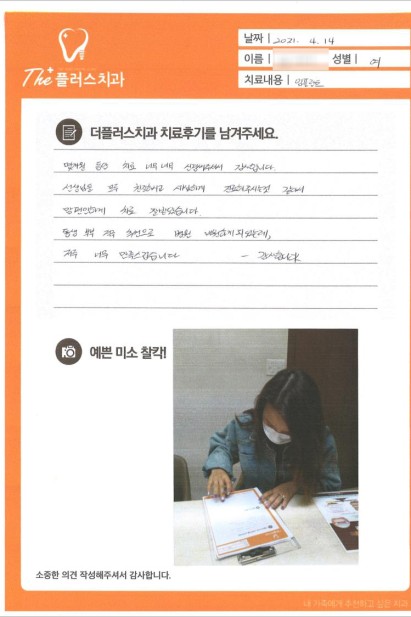 날짜 | 2021. 4. 14
이름 | 성별 | 여
The 플러스치과
치료내용 | 임플란트
더플러스치과 치료후기를 남겨주세요.
몇개월 동안 치료 너무너무 신경써주셔서 감사합니다.
선생님도 모두 친절하시고
맘편안하게 치료 잘 받았습니다.
동생 부부 추천으로 병원 내원하게 되었는데,
너무 만족스럽습니다 - 감사합니다
예쁜 미소 찰칵!
소중한 의견 작성해주셔서 감사합니다.
내 가족에게 추천하고 싶은 치과